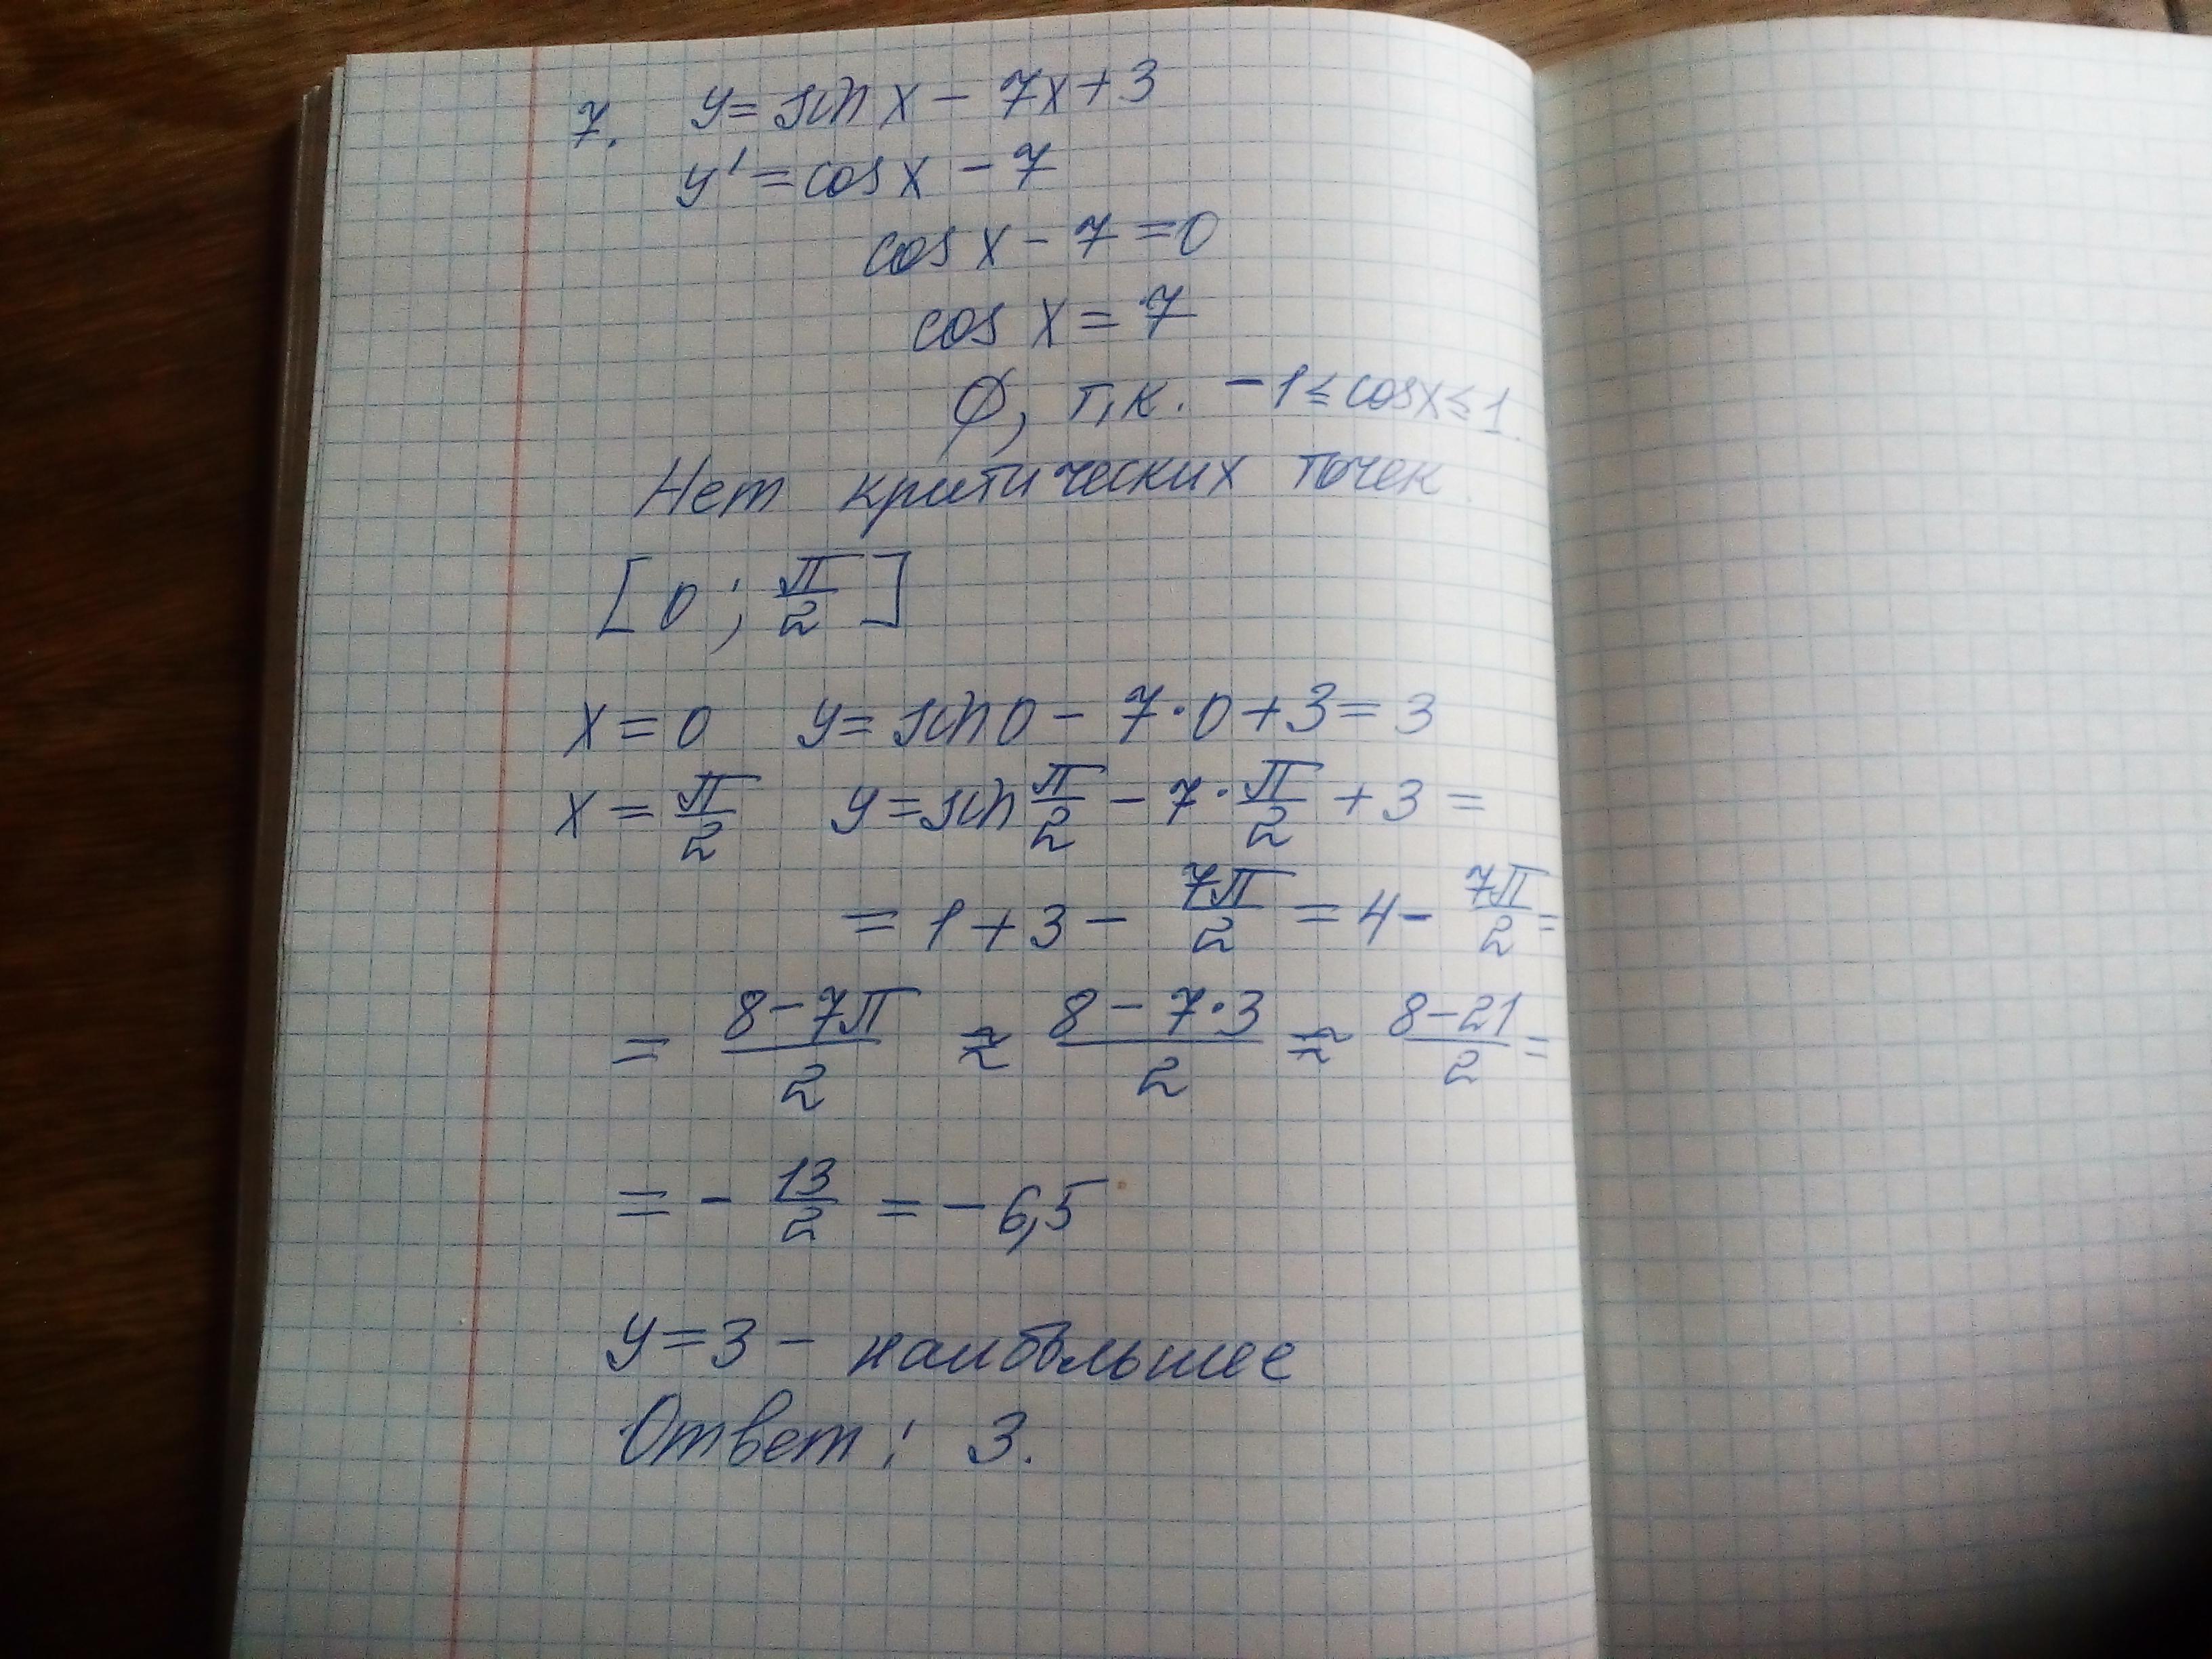 7. y = sin x - 7x + 3
y' = cos x - 7
cos x - 7 = 0
cos x = 7
∅, т.к. -1 ≤ cos x ≤ 1.
Нет критических точек.
[0; π/2]
x = 0 y = sin 0 - 7·0 + 3 = 3
x = π/2 y = sin π/2 - 7·π/2 + 3 =
= 1 + 3 - 7π/2 = 4 - 7π/2 =
= (8 - 7π)/2 ≈ (8 - 7·3)/2 ≈ (8 - 21)/2 =
= - 13/2 = - 6,5
y = 3 - наибольшее
Ответ: 3.